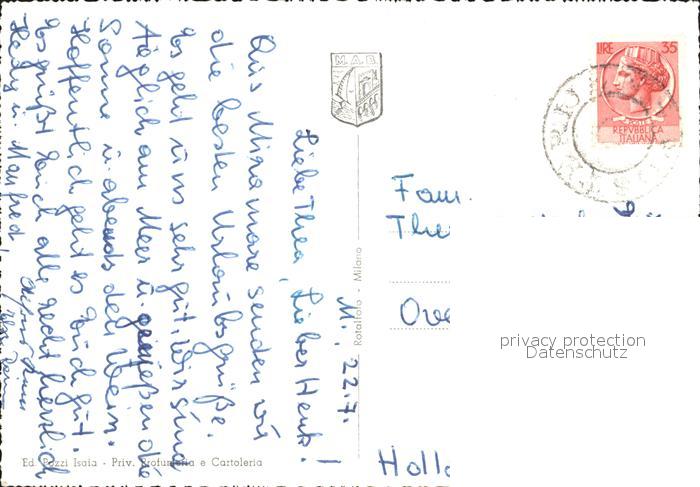 M., 22.7.
Liebe Thea, Lieber Henk!
Aus Miramare senden wir
die besten Urlaubsgrüße.
Es geht uns sehr gut. Wir sind
täglich am Meer u. genießen die
Sonne u. abends den Wein.
Hoffentlich geht es Euch gut.
Es grüßt Euch alle recht herzlich
Helg u. Manfred
M.A.B.
Rotalfoto - Milano
Ed. Pozzi Isaia - Priv. Profumeria e Cartoleria
LIRE 35
POSTE
REPVBBLICA
ITALIANA
Fam.
The
Ove
Holla
privacy protection
Datenschutz